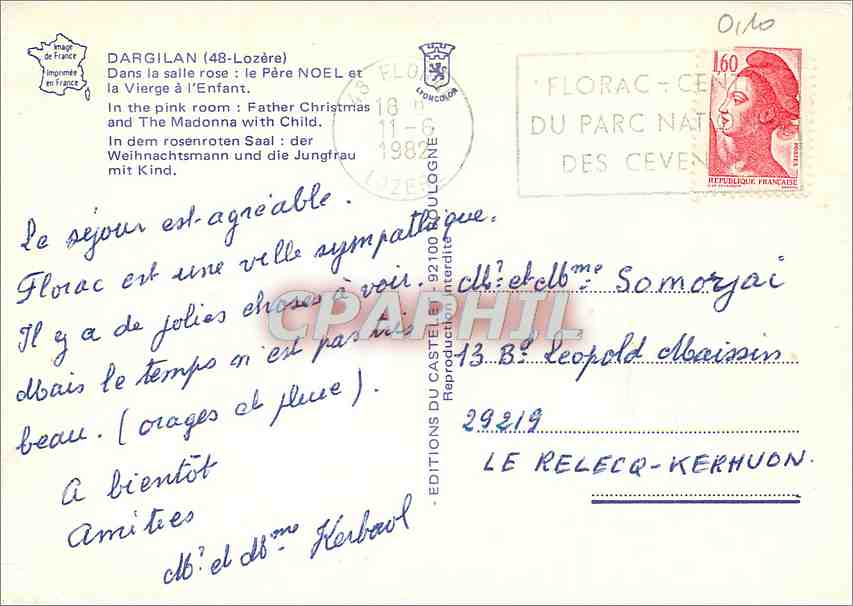 0,10
Image
de France
Imprimée
en France
DARGILAN (48-Lozère)
Dans la salle rose : le Père NOEL et
la Vierge à l'Enfant.
In the pink room : Father Christmas
and The Madonna with Child.
In dem rosenroten Saal : der
Weihnachtsmann und die Jungfrau
mit Kind.
LYONCOLOR
48 FLORAC
18 H
11-6
1982
LOZERE
FLORAC - CEN
DU PARC NATIO
DES CEVEN
1,60
POSTES
REPUBLIQUE FRANÇAISE
Le séjour est agréable.
Florac est une ville sympathique.
Il y a de jolies choses à voir.
Mais le temps n'est pas très
beau. (orages et pluie).
A bientôt
Amitiés
Mr et Mme Kerbaol
- EDITIONS DU CASTELET - 92100 BOULOGNE
Reproduction interdite
CPAPHIL
Mr et Mme Somorjai
13 Bd Léopold Maissin
29219
LE RELECQ-KERHUON.